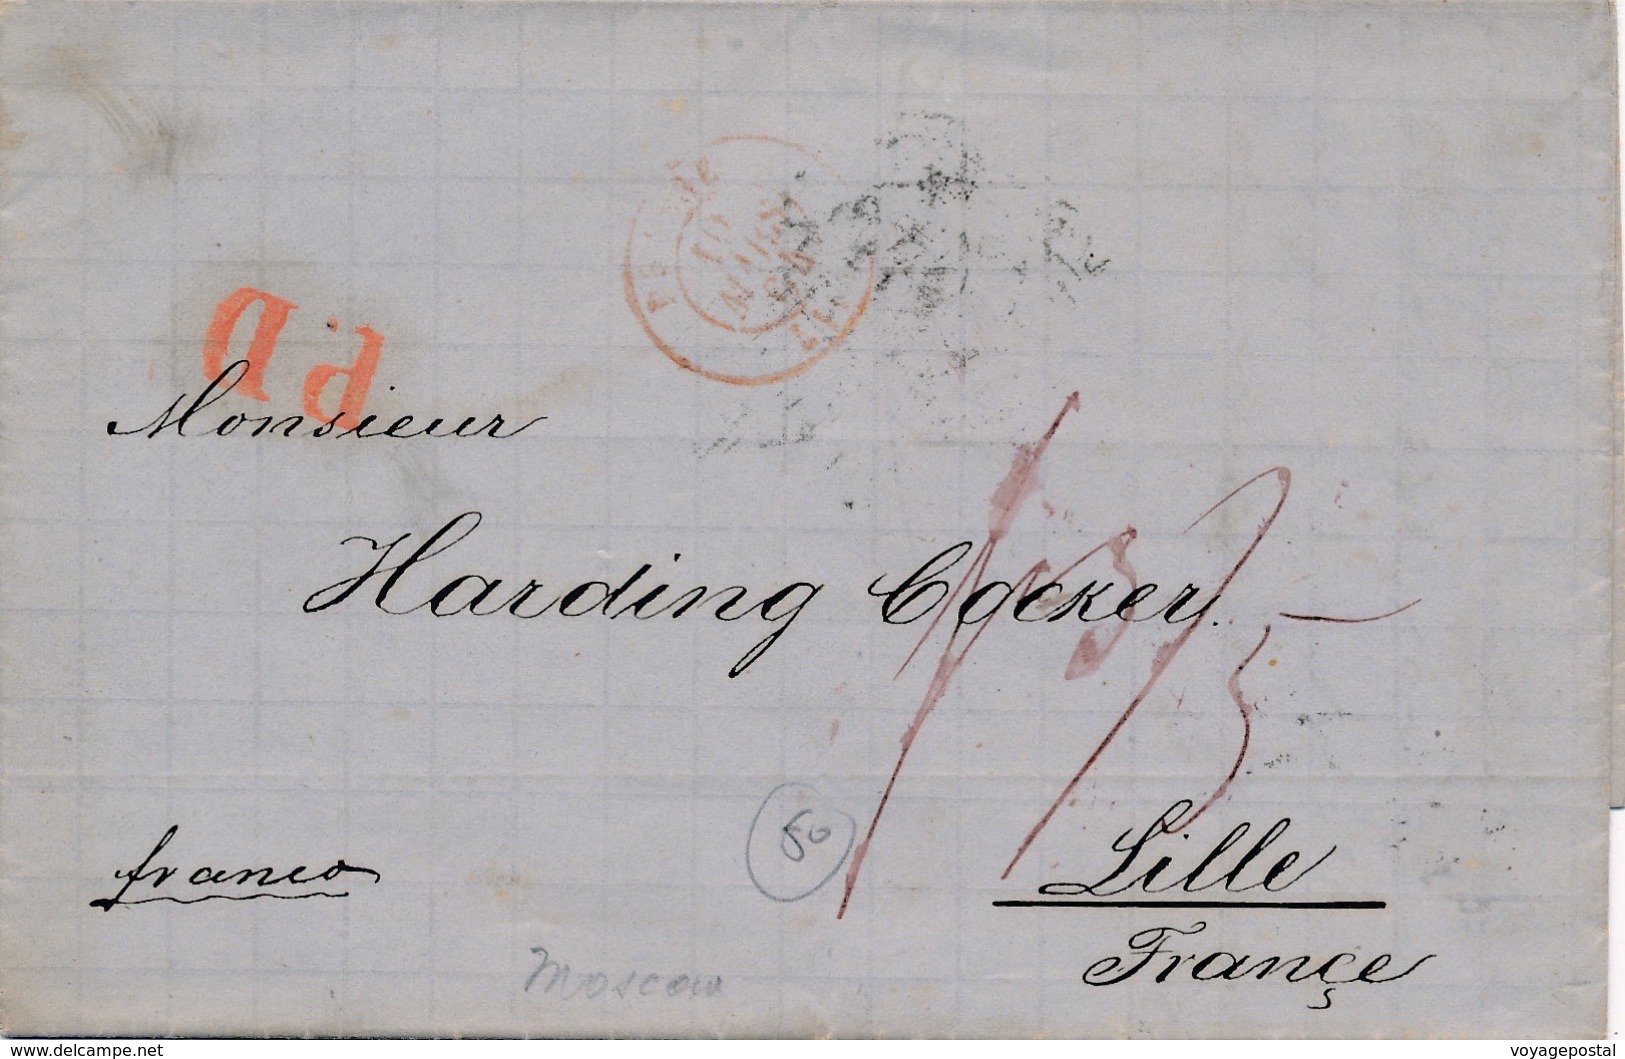 P.D.
10
MARS
Monsieur
Harding Cocker.
50
franco
Lille
Françe
Moscow
delcampe.net
voyagepostal